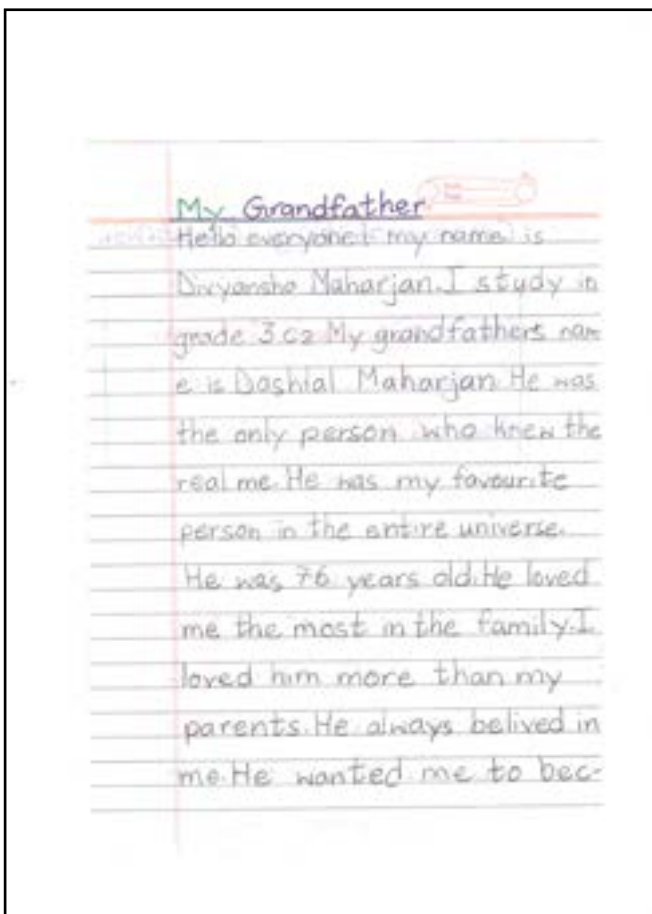 My Grandfather
Hello everyone! my name is
Divyansha Maharjan. I study in
grade 3 C2 My grandfathers nam
e is Dashlal Maharjan He was
the only person who knew the
real me. He was my favourite
person in the entire universe.
He was 76 years old. He loved
me the most in the family. I
loved him more than my
parents. He always belived in
me. He wanted me to bec-